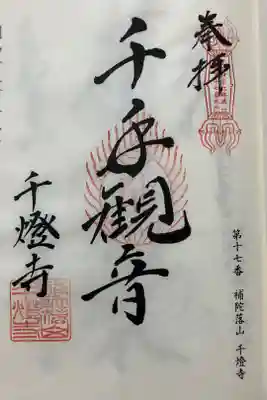 奉拝
千手観音
千燈寺
第十七番 補陀落山 千燈寺